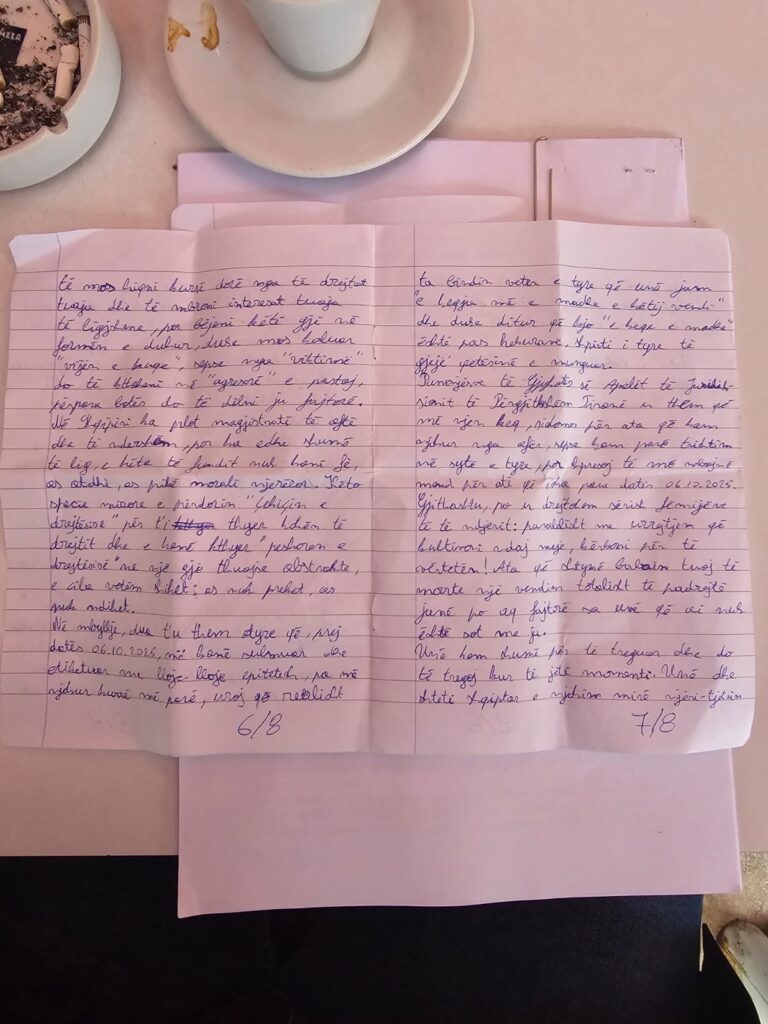 të mos hiqni kurrë dorë nga të drejtat
tuaja dhe të mbroni interesat tuaja
të ligjshme, por bëjeni këtë gjë në
formën e duhur, duke mos kaluar
"vijën e kuqe", sepse nga "viktimë"
do të ktheheni në "agresorë" e pastaj,
përpara botës do të dilni ju fajtorë.
Në Shqipëri ka plot magjistratë të aftë
dhe të ndershëm, por ka edhe shumë
të liq, e këta të fundit nuk kanë fe,
as atdhe, as pikë morali njerëzor. Këto
specie mizore e përdorin "Çekiçin e
drejtësisë" për t'i thyer kokën të
drejtit dhe e kanë kthyer "peshoren e
drejtësisë" në një gjë thuajse abstrakte,
e cila vetëm shihet: as nuk prehet, as
nuk ndihet.
Në mbyllje, dua t'u them atyre që, prej
datës 06.10.2025, më kanë sulmuar dhe
etiketuar me lloje-lloje epitetesh, pa më
njohur kurrë më parë, uroj që realisht
6/8
ta bindin veten e tyre që unë jam
"e keqja më e madhe e këtij vendi"
dhe duke ditur që kjo "e keqe e madhe"
është pas hekurave, shpirti i tyre të
gjejë qetësinë e munguar.
Punonjësve të Gjykatës së Apelit të Juridik-
sionit të Përgjithshëm Tiranë u them që
më vjen keq, sidomos për ata që kam
njohur nga afër, sepse kam parë trishtim
në sytë e tyre, por shpresoj të më mbajnë
mend për atë që isha para datës 06.10.2025.
Gjithashtu, po u drejtohem sërish fëmijëve
të të ndjerit: paralelisht me urrejtjen që
kultivoni ndaj meje, kërkoni për të
vërtetën! Ata që shtynë babain tuaj të
merrte një vendim totalisht të padrejtë
janë po aq fajtorë sa unë që ai nuk
është sot me ju.
Unë kam shumë për të treguar dhe do
të tregoj kur të jetë momenti. Unë dhe
shteti shqiptar e njohim mirë njëri-tjetrin
7/8